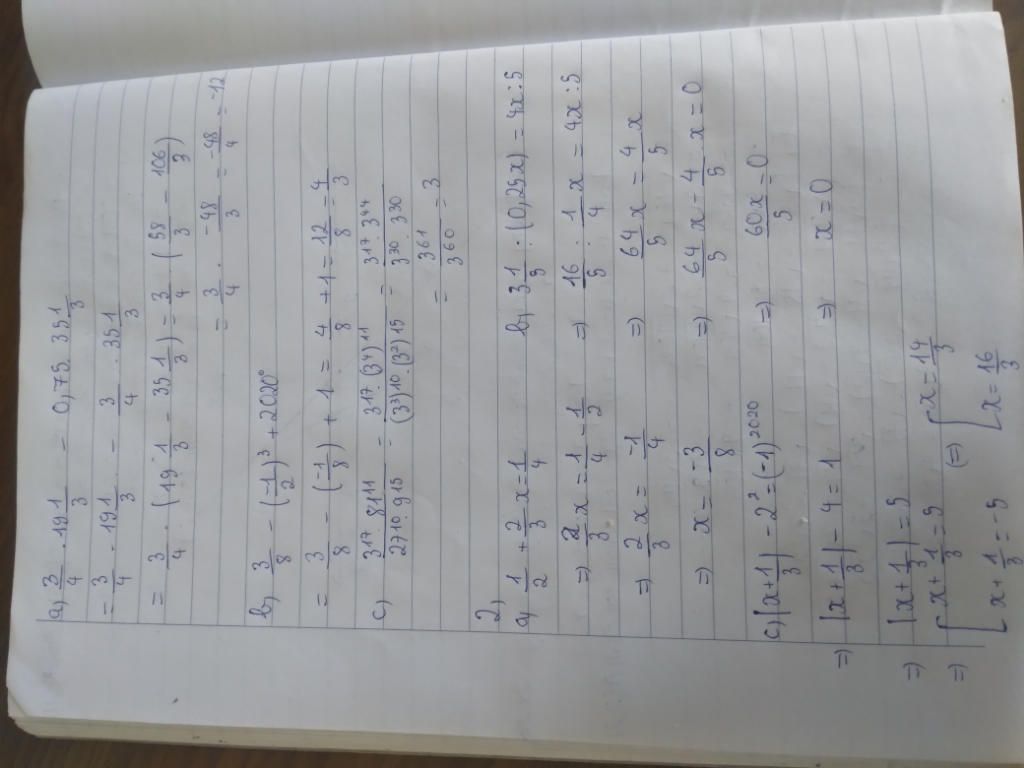 a, 3/4 . 19 1/3 - 0,75. 35 1/3
= 3/4 . 19 1/3 - 3/4 . 35 1/3
= 3/4 . (19 1/3 - 35 1/3) = 3/4 . (58/3 - 106/3)
= 3/4 . -48/3 = -48/4 = -12
b, 3/8 - (-1/2)³ + 2020⁰
= 3/8 - (-1/8) + 1 = 4/8 + 1 = 12/8 = 4/3
c, 3¹⁷. 81¹¹/27¹⁰. 9¹⁵ = 3¹⁷. (3⁴)¹¹/(3³)¹⁰. (3²)¹⁵ = 3¹⁷. 3⁴⁴/3³⁰. 3³⁰
= 3⁶¹/3⁶⁰ = 3
2,
a, 1/2 + 2/3 x = 1/4
=> 2/3 x = 1/4 - 1/2
=> 2/3 x = -1/4
=> x = -3/8
b, 3 1/5 : (0,25x) = 4x : 5
=> 16/5 : 1/4 x = 4x : 5
=> 64/5 x = 4/5 x
=> 64/5 x - 4/5 x = 0
=> 60x/5 = 0
=> x = 0
c, |x + 1/3| - 2² = (-1)²⁰²⁰
=> |x + 1/3| - 4 = 1
=> |x + 1/3| = 5
=> [ x + 1/3 = 5 (=) [ x = 14/3
[ x + 1/3 = -5 [ x = 16/3